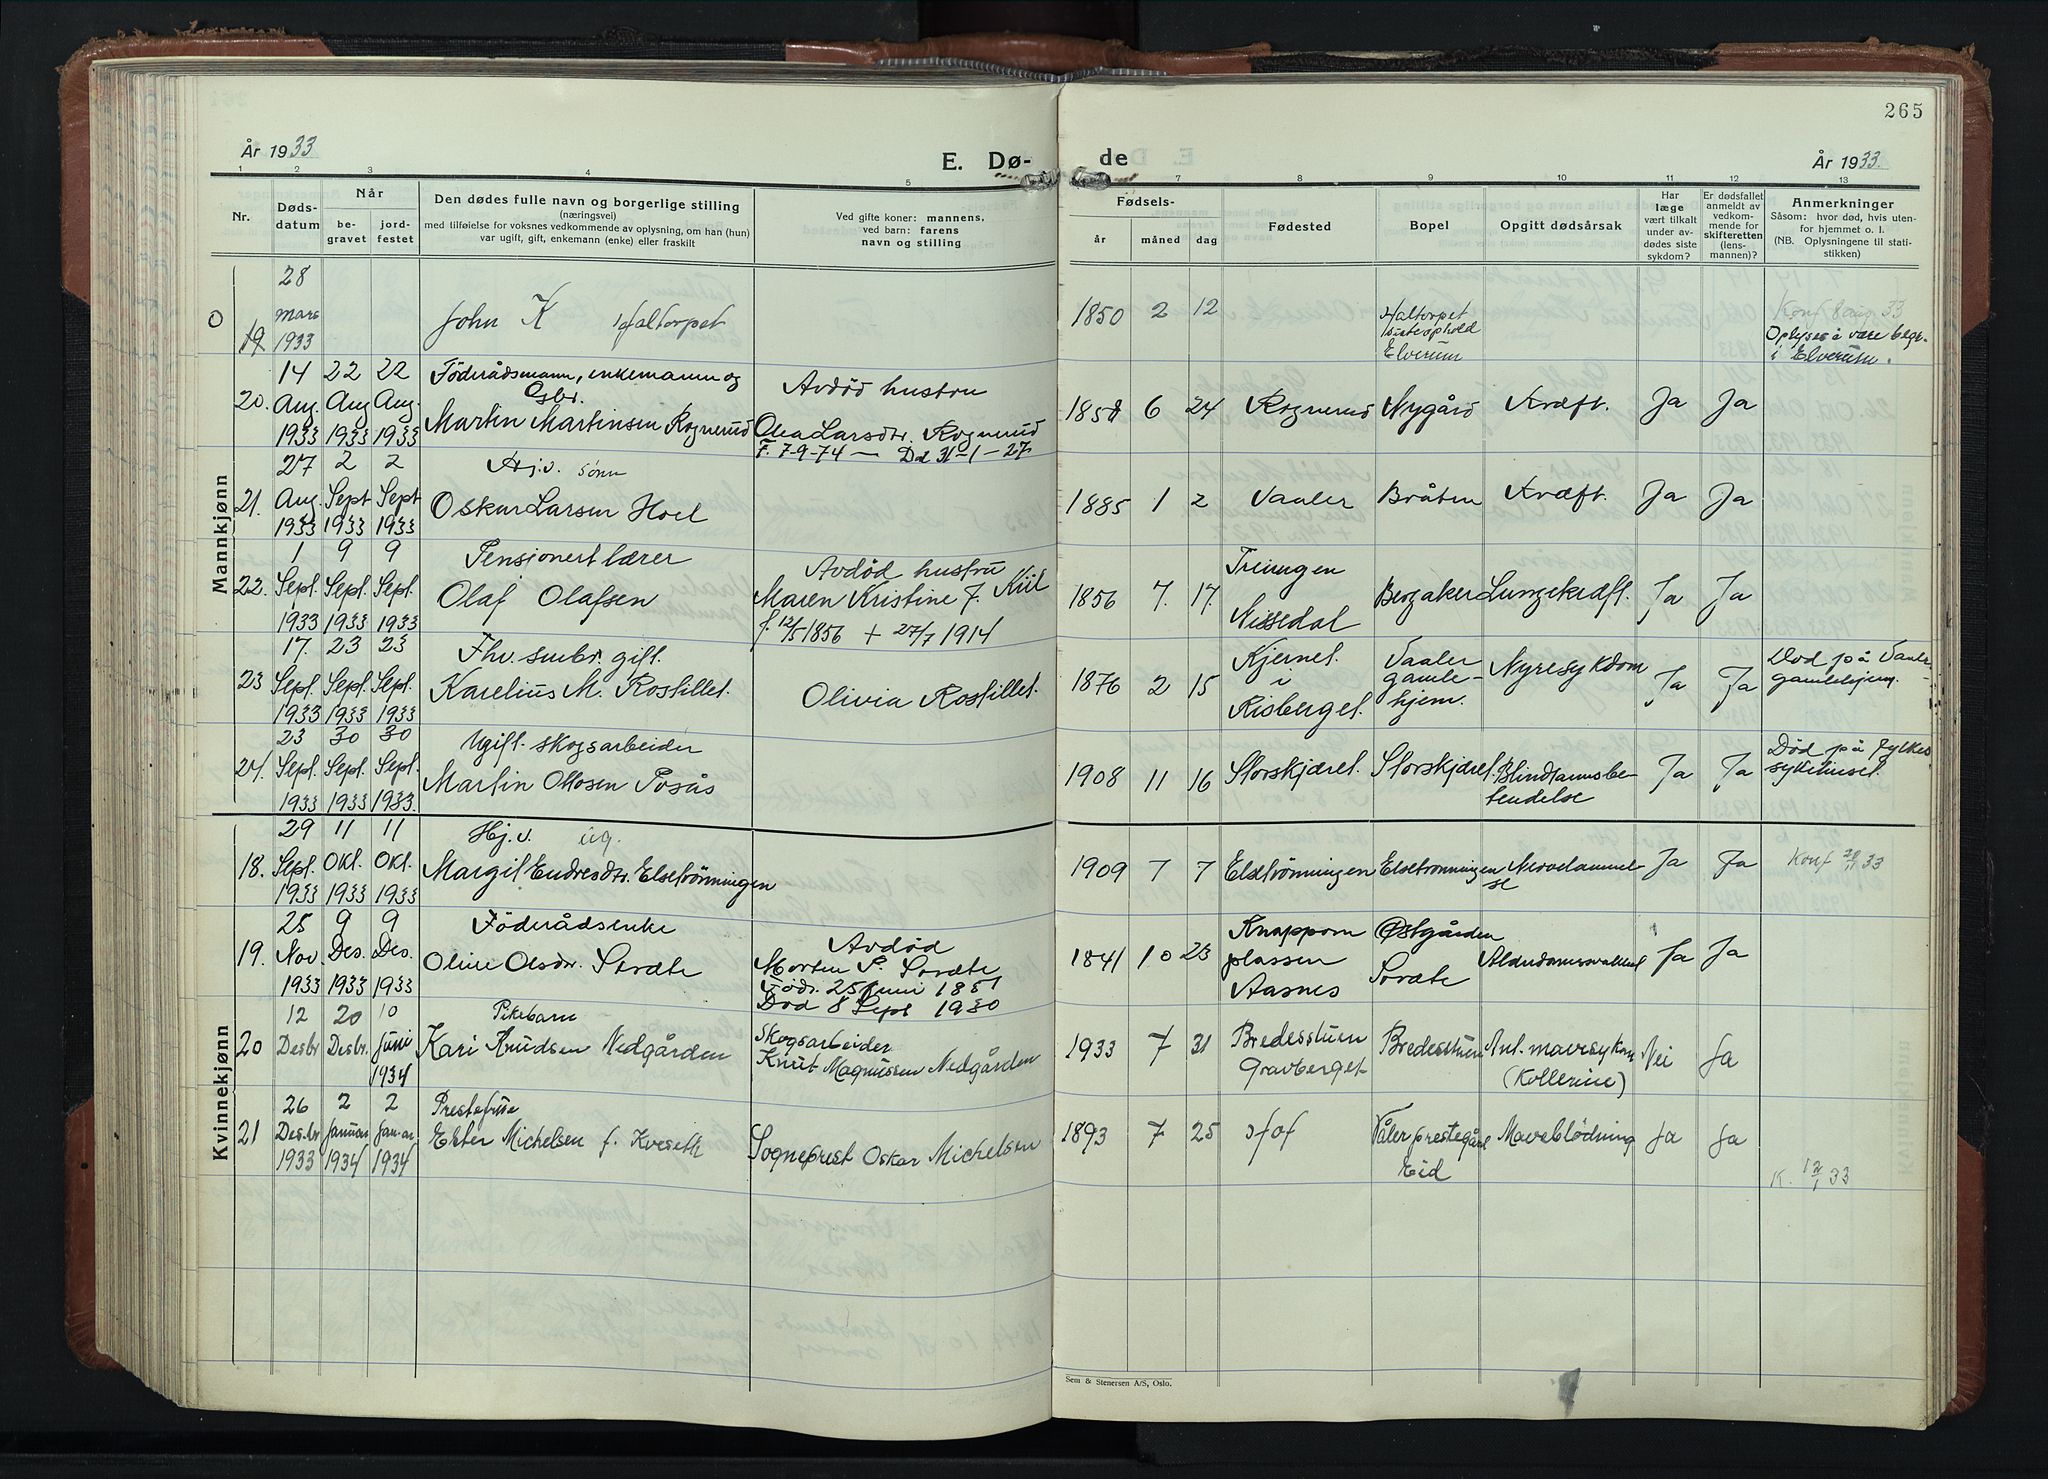 265
År 1933
E. Dø-
de
År 1933.
1 2 3 4 5 7 8 9 10 11 12 13
Nr.
Døds-
datum
Når
be-
gravet
jord-
festet
Den dødes fulle navn og borgerlige stilling
(næringsvei)
med tilføielse for voksnes vedkommende av oplysning, om han (hun)
var ugift, gift, enkemann (enke) eller fraskilt
Ved gifte koner: mannens,
ved barn: farens
navn og stilling
Fødsels-
år måned dag
Fødested
Bopel
Opgitt dødsårsak
Har
læge
vært tilkalt
under av-
dødes siste
sykdom?
Er dødsfallet
anmeldt av
vedkom-
mende for
skifteretten
(lens-
mannen)?
Anmerkninger
Såsom: hvor død, hvis uten-
for hjemmet o. l.
(NB. Oplysningene til stati-
stikken)
Mannkjønn
O
19
28
mars
1933
John K Haltorpet
1850 2 12
Haltorpet
sisteophold
Elverum
Konf 8 aug 33
Oplyses å være begr.
i Elverum.
20.
14 22 22
Aug. Aug Aug.
1933 1933 1933
Föderådsmann, enkemann og
Gbr.
Martin Martinsen Rognerud
Avdöd hustru
Olea Larsdtr. Rognerud
F. 7-9-74 — Död 31-1-27
6 24 Rognerud Nygård Kræft. Ja Ja
21.
27 2 2
Aug. Sept Sept
1933 1933 1933
Arj.v. sønn
Oskar Larsen Hoel
1885 1 2 Vaaler Bråten Kræft. Ja Ja
22.
1 9 9
Sept. Sept. Sept.
1933 1933 1933
Pensionert lærer
Olaf Olafsen
Avdöd hustru
Maren Kristine f. Kiil
f. 12/5 1856 + 27/7 1914
1856 7. 17.
Treungen
Nissedal
Bergaker Lungekræft. Ja Ja
23
17. 23 23
Sept. Sept. Sept.
1933 1933 1933
Fhv. smbr. gift.
Karelius M. Rostillet.
Olivia Rostillet.
1876 2 15
Kjernet
i
Risberget.
Vaaler
gamle-
hjem.
Nyresykdom Ja Ja
Död på Vaaler
gamlehjem.
24.
23 30 30
Sept. Sept. Sept.
1933 1933 1933.
Ugift. skogsarbeider
Martin Ottosen Posås
1908 11 16 Storskjæret. Storskjæret.
Blindtarmsbe-
tendelse
Ja Ja
Död på Fylkes
sykehuset.
Kvinnekjønn
18.
29 11 11
Sept. Okt. Okt.
1933 1933 1933
Hj.v. ug.
Margit Endresdtr. Elsetrönningen
1909 7 7 Elsetrönningen Elsetrönningen
Nervelammel-
se
Ja Ja
Konf 20/11 33
19.
25 9 9
Nov. Des. Des.
1933 1933 1933
Föderådsenke
Oline Olsdtr. Sorate
Avdöd
Morten P. Sorate
Föds. 25 Juni 1851
Död 8 Sept 1930
1841 10 23
Knappom
plassen
Aasnes
Østgården
Sorate
Ja Ja
20
12 20 10
Desbr Desbr. Juni
1933 1933 1934
Pikebarn
Kari Knudsen Nedgården
Skogsarbeider
Knut Magnussen Nedgården
1933 7 31
Bredesstuen
Gravberget
Bredesstuen
Ant. mavesykdom
(Kollerine)
Nei Ja
21
26 2 2
Desbr Januar Januar
1933 1934 1934
Prestefrue
Ester Michelsen f. Kveseth
Sogneprest Oskar Michelsen
1893 7 25 Hof
Våler prestegård
Eid
Maveblödning Ja Ja
K. 12/1 33
Sem & Stenersen A/S, Oslo.